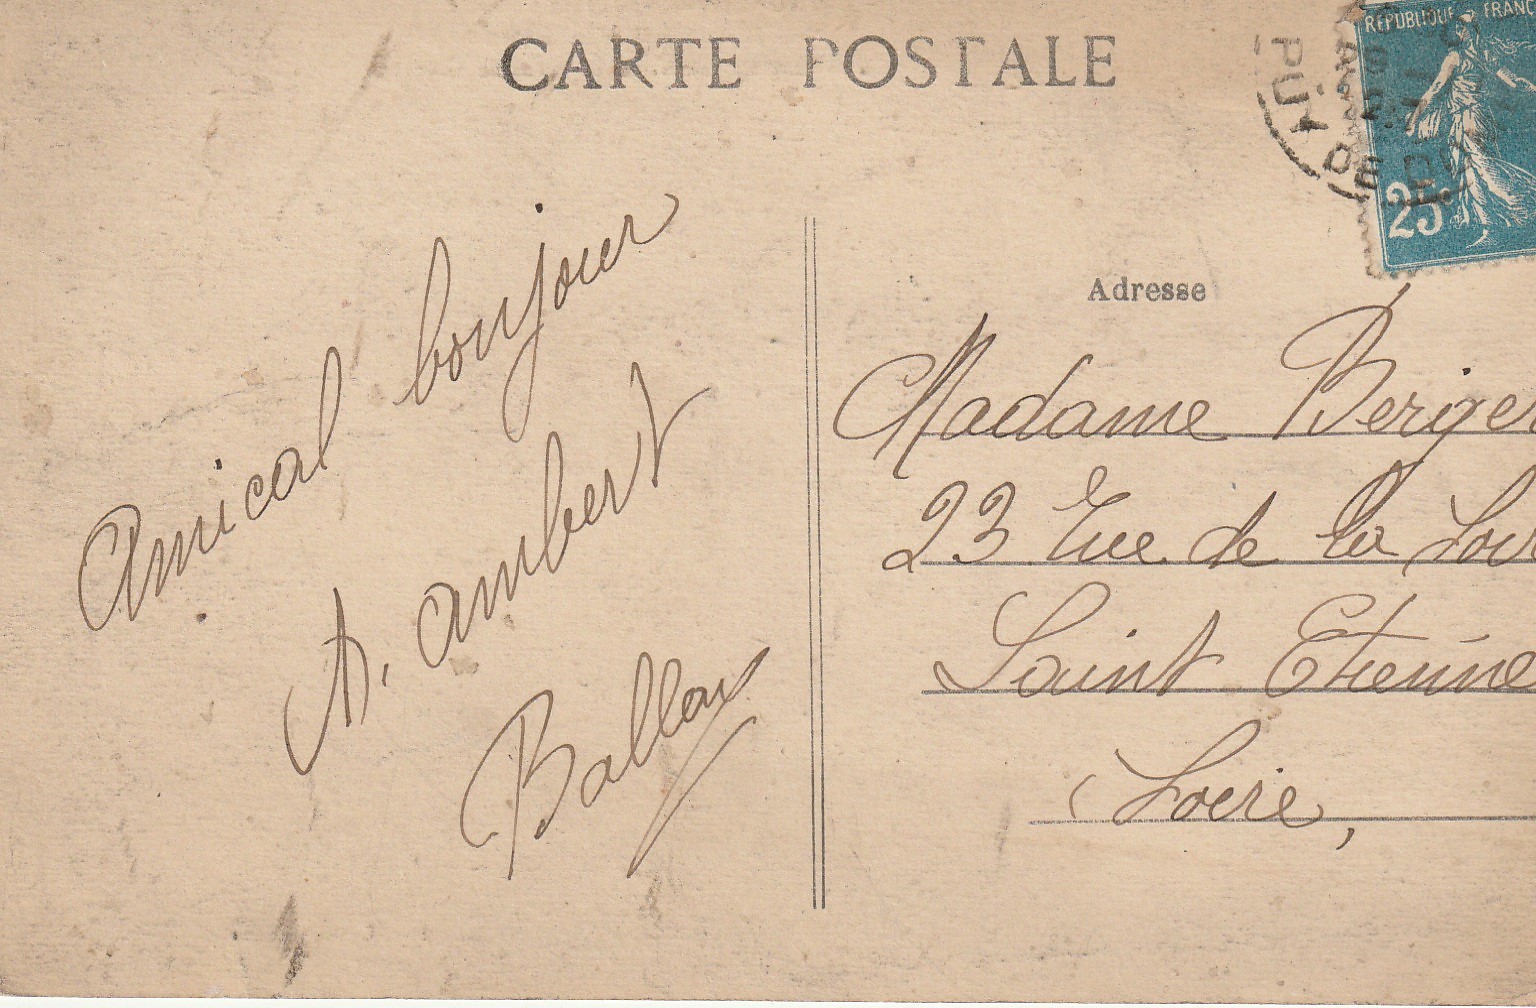 CARTE POSTALE
REPUBLIQUE FRANÇ
25
PUY DE
Amical bonjour
A. Ambert
Adresse
Madame Berger
23 rue de la Loir
Saint Etienne
(Loire,